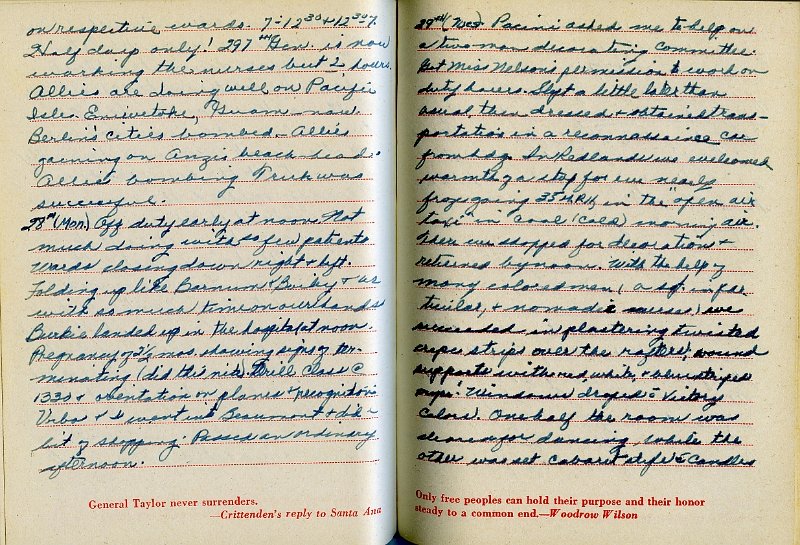 on respective wards. 7-12³⁰ + 12³⁰-7.
Half day only! 297ᵗʰ Gen. is now
working the nurses but 2 hours.
Allies are doing well on Pacific
Isle. Eniwetoke, Guam - now.
Berlin's cities bombed - Allies
gaining on Anzio beach-head.
Allies bombing Truk was
successful.
28ᵗʰ (Mon.) Off duty early at noon. Not
much doing with so few patients
Wards closing down right & left.
Folding up like Barnum & Bailey & us
with as much time on our hands
Burkie landed up in the hospital at noon.
Pregnancy of 3½ mos. showing signs of ter-
minating (did this nite). Drill Class @
1330 & orientation on planes & recognition
Urbo & I went into Beaumont & did a
bit of shopping. Passed an ordinary
afternoon.
General Taylor never surrenders.
—Crittenden's reply to Santa Ana
29ᵗʰ (Tues) Pacini asked me to help on
a two man decorating committee.
Got Miss Nelson's permission to work on
duty hours. Slept a little later than
usual, then dressed & obtained trans-
portation in a reconnaissance car
from hdq. In Redlands we welcomed
warmth & a stop for we nearly
froze going 35 M.P.H. in the open air
taxi in cool (cold) morning air.
There we shopped for decorations &
returned by noon. With the help of
many colored men (a Sgt. in par-
ticular, & nomadic nurses) we
succeeded in plastering twisted
crepe strips over the rafters, wound
supports with red, white, & blue striped
crepe. Windows draped c̄ Victory
Colors. One half the room was
cleared for dancing, while the
other was set cabaret style c̄ candles
Only free peoples can hold their purpose and their honor
steady to a common end.—Woodrow Wilson